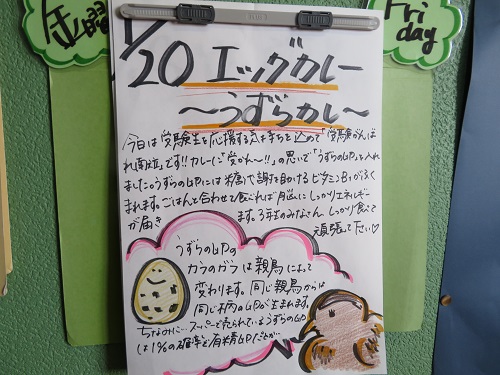 金曜日
Friday
1/20 エッグカレー
〜うずらカレ〜
今日は受験生を応援する気持ちを込めて「受験がんば
れ献立」です!!カレーに「受かれ〜!!」の思いで「うずらの卵」を入れ
ました。うずらの卵には糖代謝を助けるビタミンB₁が多く含
まれます。ごはんと合わせて食べれば脳にしっかりエネルギー
が届きます。3年生のみなさん、しっかり食べて
頑張って下さい♡
うずらの卵の
カラのガラは親鳥によって
変わります。同じ親鳥からは
同じ柄の卵が生まれます。
ちなみに…スーパーで売られているうずらの卵
は1%の確率で有精卵だとか…